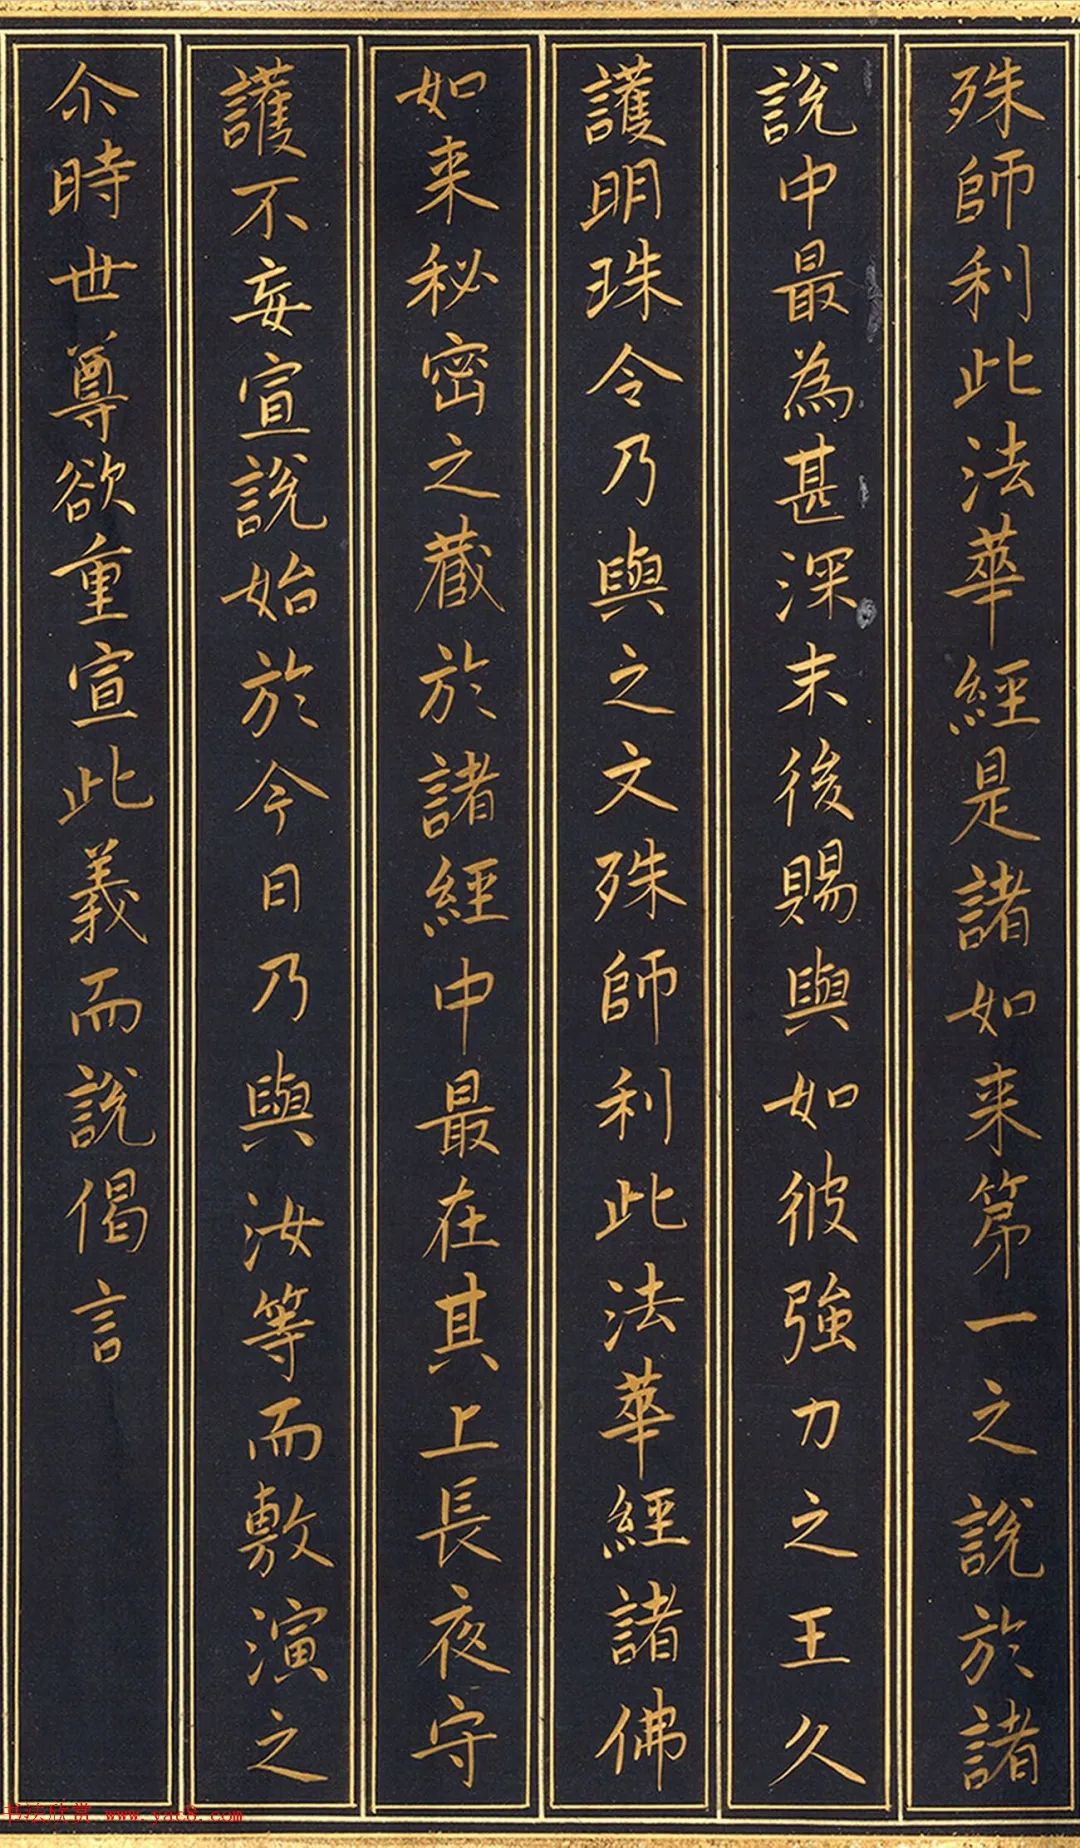 殊師利此法華經是諸如来第一之說於諸
說中最為甚深末後賜與如彼強力之王久
護明珠令乃與之文殊師利此法華經諸佛
如来秘密之藏於諸經中最在其上長夜守
護不妄宣說始於今日乃與汝等而敷演之
尒時世尊欲重宣此義而說偈言
书法欣赏 www.yac8.com